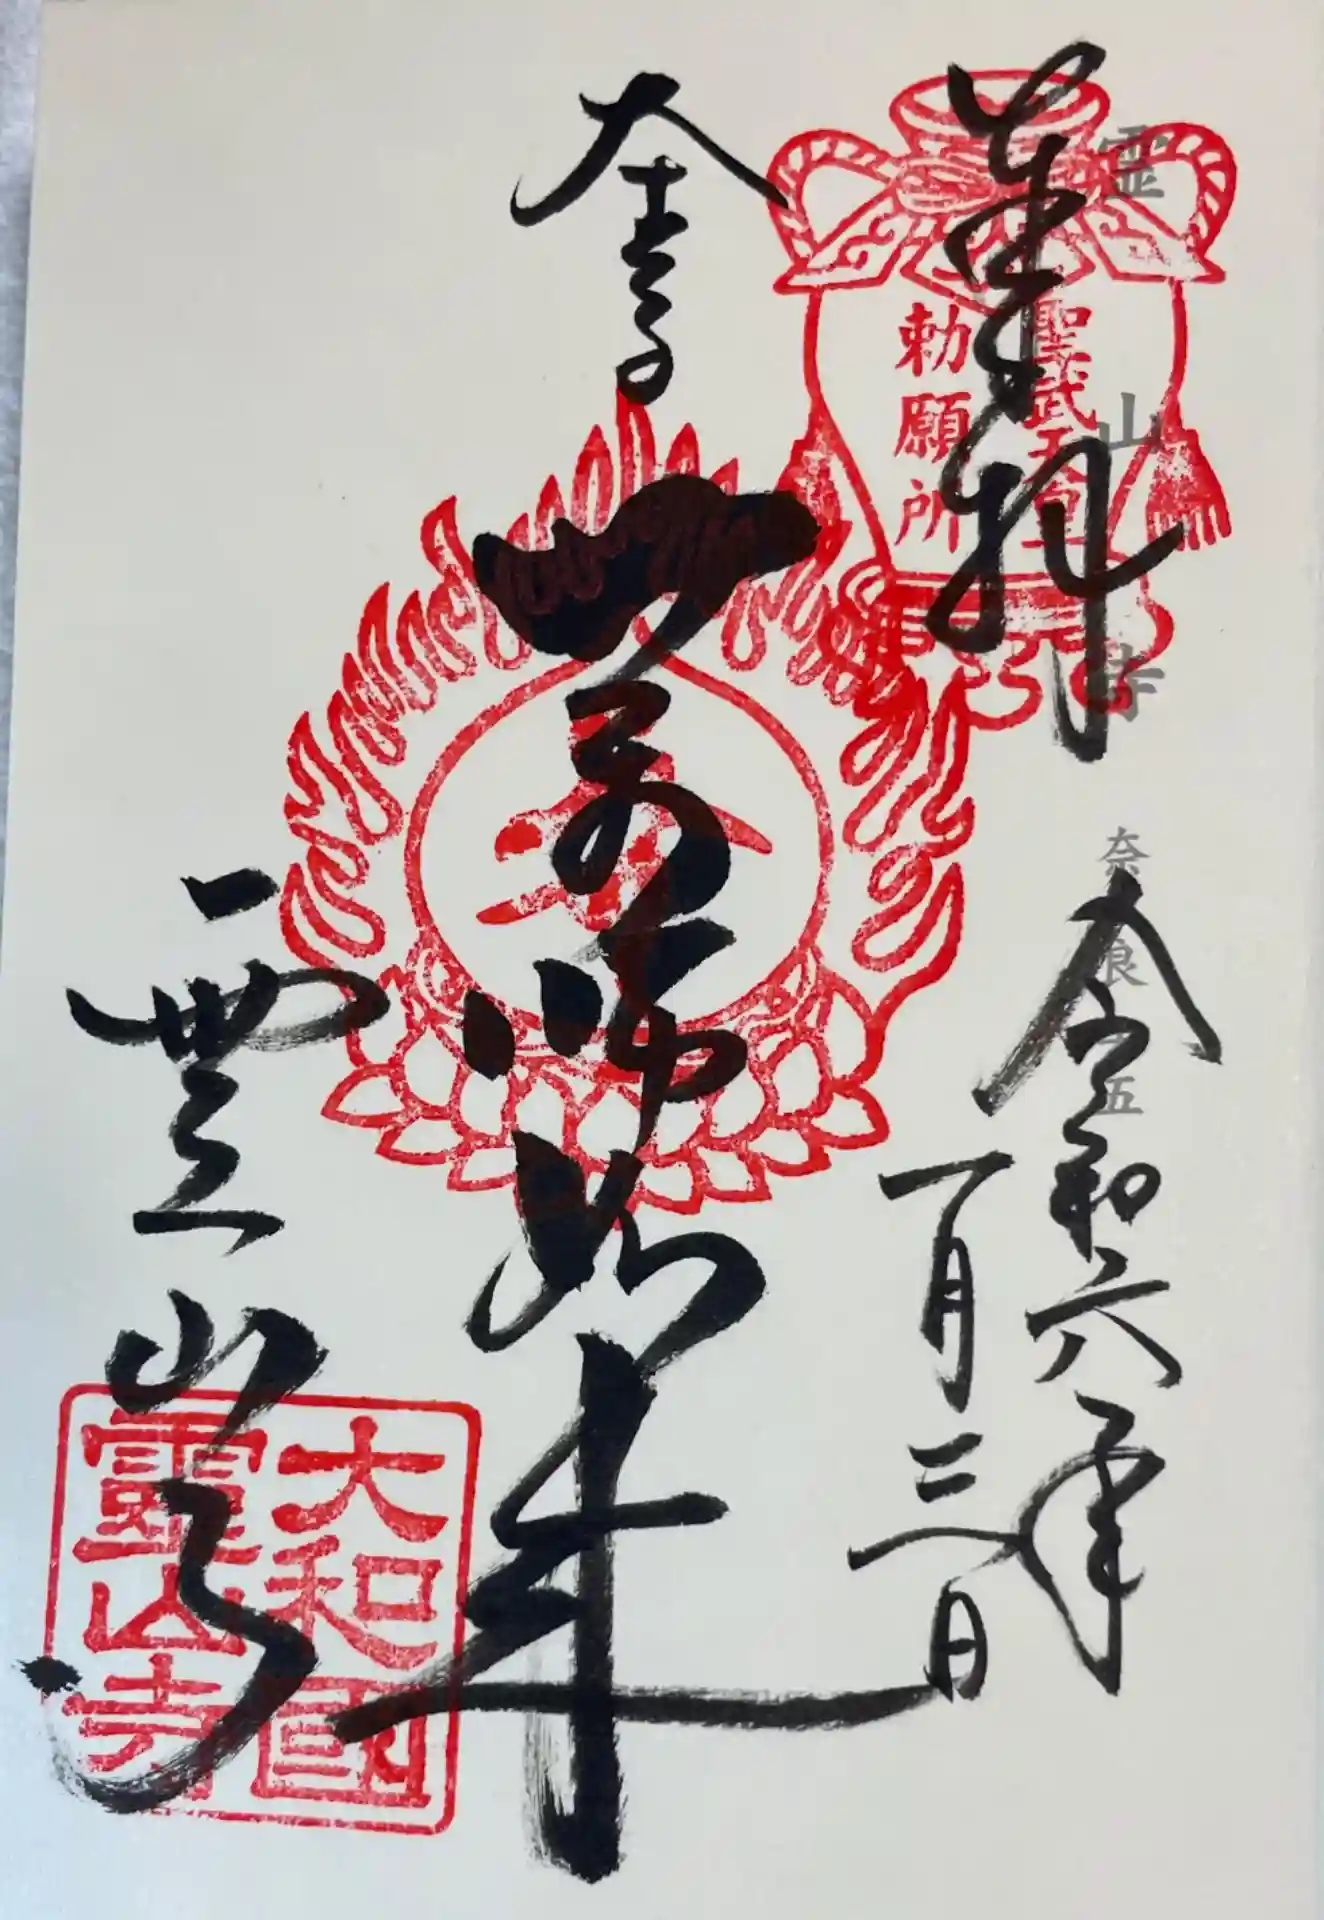 霊山寺
奈良 五
奉拝
聖武天皇
勅願所
令和六年
一月三日
薬師如来
霊山寺
大和國
靈山寺